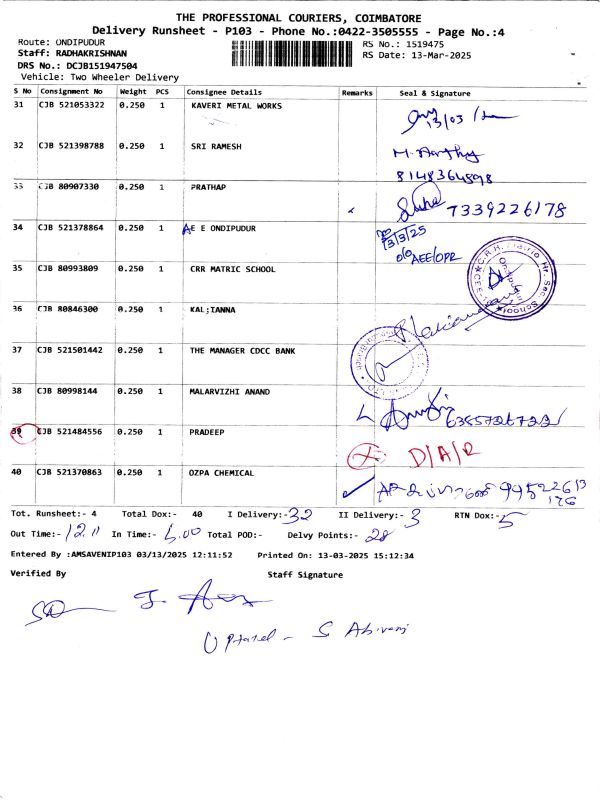 THE PROFESSIONAL COURIERS, COIMBATORE
Delivery Runsheet - P103 - Phone No.:0422-3505555 - Page No.:4
Route: ONDIPUDUR
RS No.: 1519475
Staff: RADHAKRISHNAN
RS Date: 13-Mar-2025
DRS No.: DCJB151947504
Vehicle: Two Wheeler Delivery
S No Consignment No Weight PCS Consignee Details Remarks Seal & Signature
31 CJB 521053322 0.250 1 KAVERI METAL WORKS
13/03
32 CJB 521398788 0.250 1 SRI RAMESH
M. Aarthy
8148364898
33 CJB 80907330 0.250 1 PRATHAP
7339226178
34 CJB 521378864 0.250 1 AE E ONDIPUDUR
13/3/25
O/O AEE/OPR
35 CJB 80993809 0.250 1 CRR MATRIC SCHOOL
36 CJB 80846300 0.250 1 KAL;IANNA
37 CJB 521501442 0.250 1 THE MANAGER CDCC BANK
38 CJB 80998144 0.250 1 MALARVIZHI ANAND
39 CJB 521484556 0.250 1 PRADEEP
D/A/R
40 CJB 521370863 0.250 1 OZPA CHEMICAL
Tot. Runsheet:- 4 Total Dox:- 40 I Delivery:- 32 II Delivery:- 3 RTN Dox:- 5
Out Time:- 12.11 In Time:- 6.00 Total POD:- Delvy Points:- 28
Entered By :AMSAVENIP103 03/13/2025 12:11:52 Printed On: 13-03-2025 15:12:34
Verified By Staff Signature